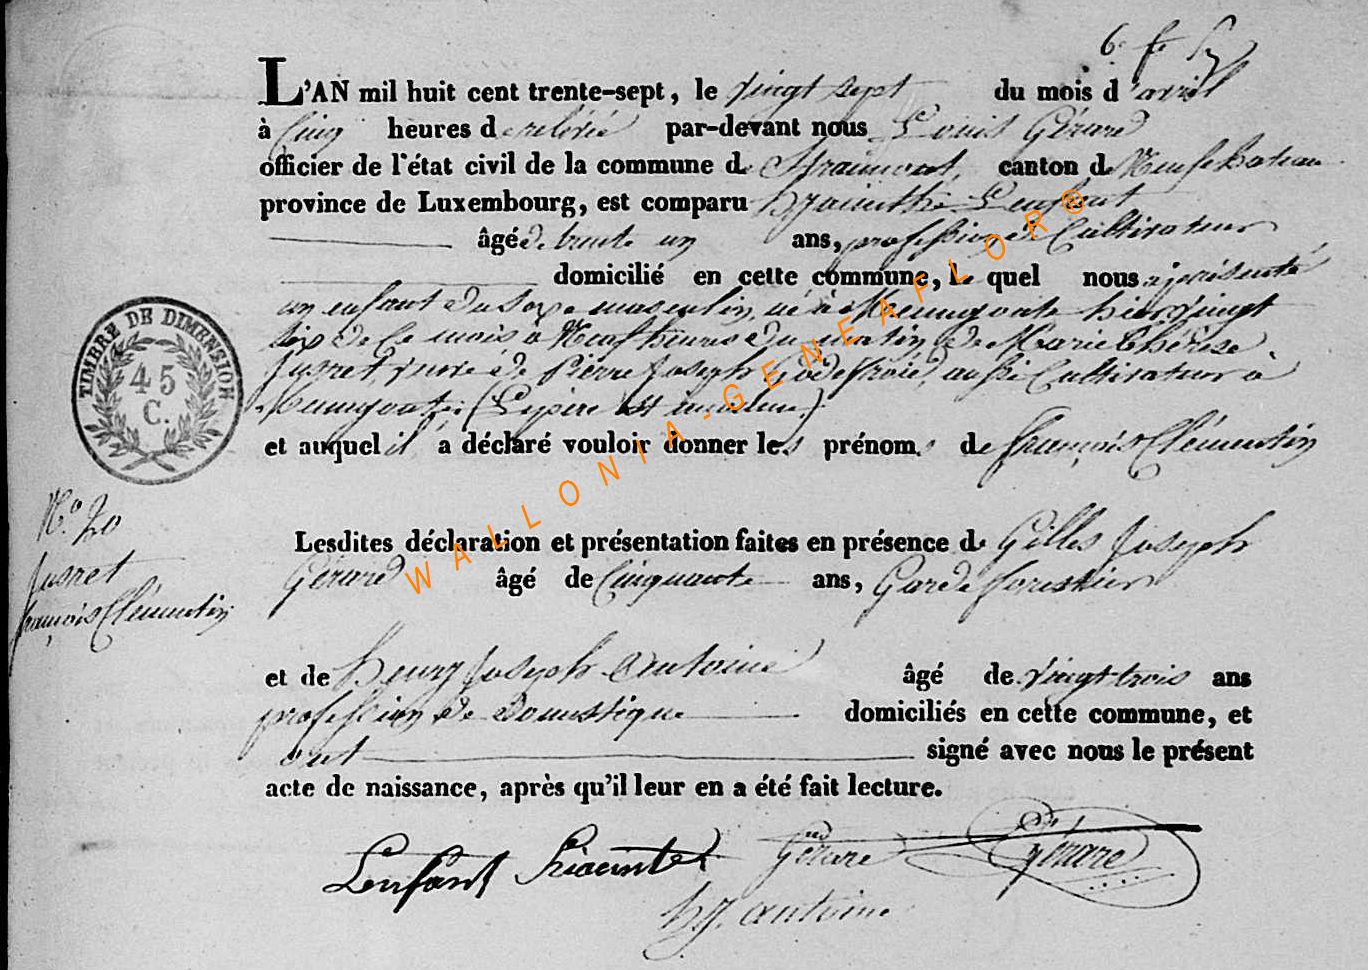 6e fe
L'AN mil huit cent trente-sept, le vingt sept du mois d'avril
à Cinq heures de relevée par-devant nous Louis Gérard
officier de l'état civil de la commune de Straimont, canton de Neufchateau
province de Luxembourg, est comparu hyacinthe Lenfant
âgé de trente un ans, profession de Cultivateur
domicilié en cette commune, le quel nous a présenté
un enfant du sexe masculin, né à Menugoutte hier vingt
six de ce mois à Neuf heures du matin de Marie thérèse
Jusret, veuve de Pierre Joseph Godefroid, aussi Cultivateur à
Menugoutte, (Le père est inconnu)
et auquel il a déclaré vouloir donner les prénoms de françois Clémentin
TIMBRE DE DIMENSION
45
C.
No. 20
Jusret
françois Clémentin
Lesdites déclaration et présentation faites en présence de Gilles Joseph
Gérard âgé de Cinquante ans, Garde forestier
et de henry Joseph Antoine âgé de vingt trois ans
profession de domestique domiciliés en cette commune, et
ont signé avec nous le présent
acte de naissance, après qu'il leur en a été fait lecture.
Lenfant Hiacinte Gérard Gérard
hJ. antoine
WALLONIA-GENEAFLOR®